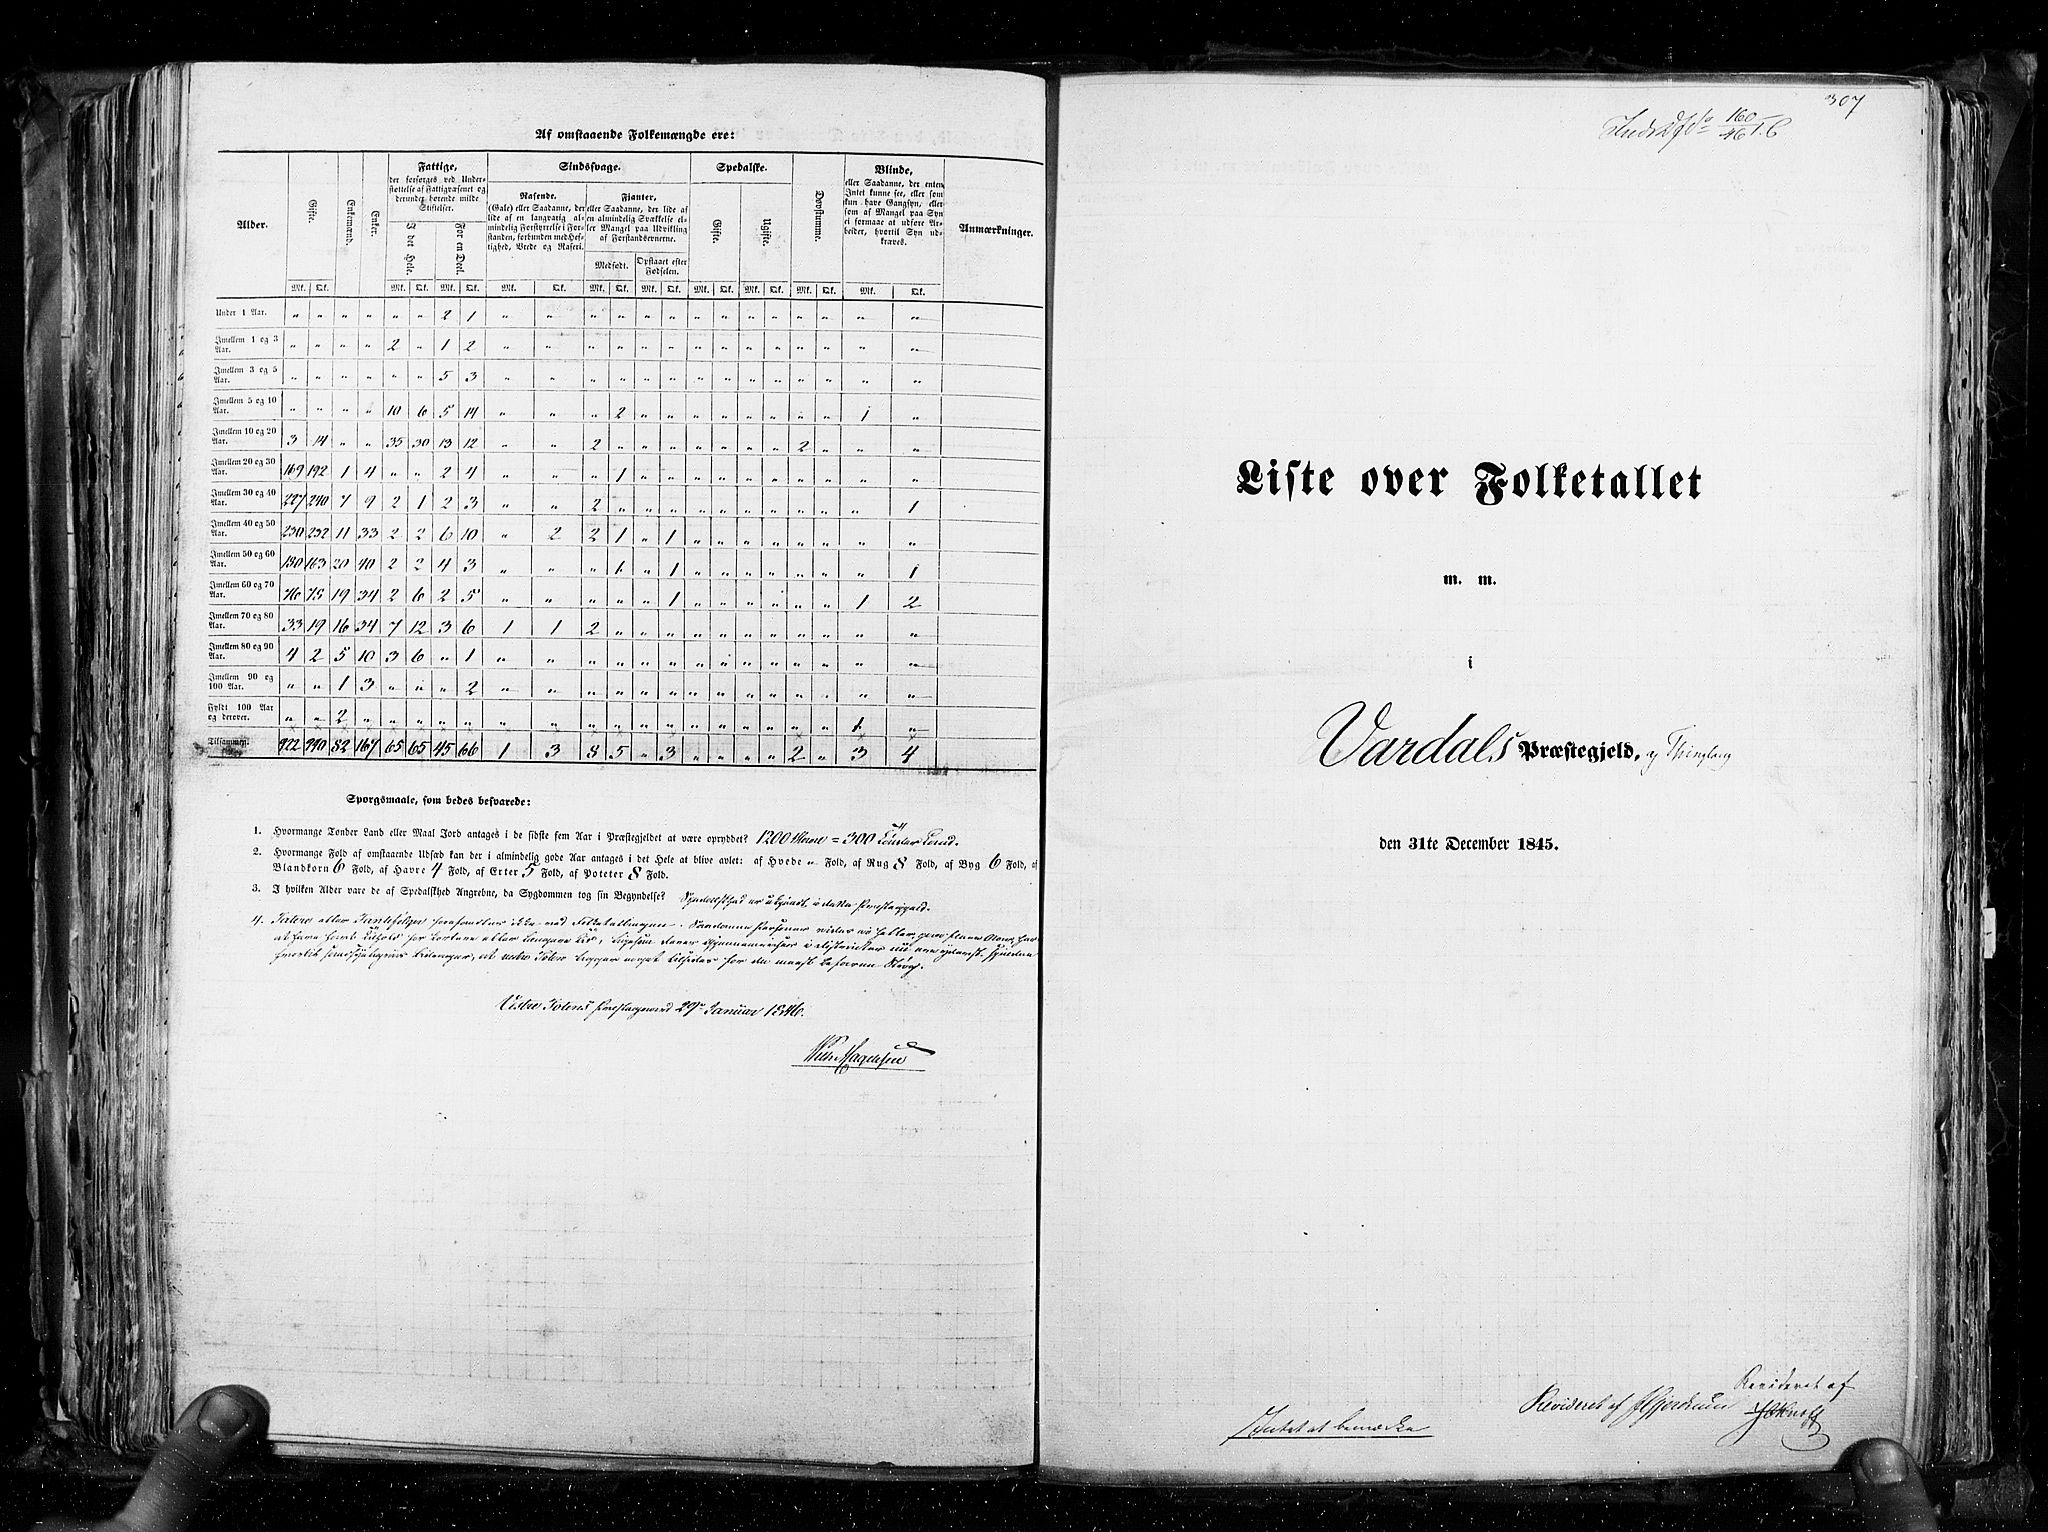 Af omstaaende Folkemængde ere:
Alder. | Gifte. | Enkemænd. | Enker. | Fattige, der forsørges ved Understøttelse af Fattigvæsenet og derunder hørende milde Stiftelser. | Sindssvage. | Spedalske. | Døvstumme. | Blinde, eller Saadanne, der enten Intet kunne see, eller som kun have Gangsyn, eller som af Mangel paa Syn ei formaae at udføre Arbeider, hvortil Syn udkræves. | Anmærkninger.
I det Hele. | For en Deel. | Rasende. (Gale) eller Saadanne, der lide af en langvarig almindelig Forstyrrelse i Forstanden, forbunden med Heftighed, Vrede og Raseri. | Fianter, eller Saadanne, der lide af en almindelig Svækkelse eller Mangel paa Udvikling af Forstandsevnerne. | Gifte. | Ugifte.
Medfødt. | Opstaaet efter Fødselen.
Mk. | Qk. | Mk. | Qk. | Mk. | Qk. | Mk. | Qk. | Mk. | Qk. | Mk. | Qk. | Mk. | Qk. | Mk. | Qk. | Mk. | Qk. | Mk. | Qk.
Under 1 Aar. | " | " | " | " | " | " | 2 | 1 | " | " | " | " | " | " | " | " | " | " | " | " | " | "
Imellem 1 og 3 Aar. | " | " | " | " | 2 | " | 1 | 2 | " | " | " | " | " | " | " | " | " | " | " | " | " | "
Imellem 3 og 5 Aar. | " | " | " | " | " | " | 5 | 3 | " | " | " | " | " | " | " | " | " | " | " | " | " | "
Imellem 5 og 10 Aar. | " | " | " | " | 10 | 6 | 5 | 14 | " | " | " | 2 | " | " | " | " | " | " | " | " | 1 | "
Imellem 10 og 20 Aar. | 3 | 14 | " | " | 35 | 30 | 13 | 12 | " | " | 2 | " | " | " | " | " | " | " | 2 | " | " | "
Imellem 20 og 30 Aar. | 169 | 192 | 1 | 4 | " | " | 2 | 4 | " | " | " | 1 | " | " | " | " | " | " | " | " | " | "
Imellem 30 og 40 Aar. | 227 | 240 | 7 | 9 | 2 | 1 | 2 | 3 | " | " | 2 | " | " | " | " | " | " | " | " | " | " | 1
Imellem 40 og 50 Aar. | 230 | 232 | 11 | 33 | 2 | 2 | 6 | 10 | " | 2 | 2 | 1 | " | 1 | " | " | " | " | " | " | " | "
Imellem 50 og 60 Aar. | 180 | 163 | 20 | 40 | 2 | 2 | 4 | 3 | " | " | " | 1 | " | 1 | " | " | " | " | " | " | " | 1
Imellem 60 og 70 Aar. | 76 | 75 | 19 | 34 | 2 | 6 | 2 | 5 | " | " | " | " | " | 1 | " | " | " | " | " | " | 1 | 2
Imellem 70 og 80 Aar. | 33 | 19 | 16 | 34 | 7 | 12 | 3 | 6 | 1 | 1 | 2 | " | " | " | " | " | " | " | " | " | " | "
Imellem 80 og 90 Aar. | 4 | 2 | 5 | 10 | 3 | 6 | " | 1 | " | " | " | " | " | " | " | " | " | " | " | " | " | "
Imellem 90 og 100 Aar. | " | " | 1 | 3 | " | " | " | 2 | " | " | " | " | " | " | " | " | " | " | " | " | " | "
Fyldt 100 Aar og derover. | " | " | 2 | " | " | " | " | " | " | " | " | " | " | " | " | " | " | " | " | " | 1 | "
Tilsammen. | 922 | 940 | 82 | 167 | 65 | 65 | 45 | 66 | 1 | 3 | 8 | 5 | " | 3 | " | " | " | " | 2 | " | 3 | 4
Spørgsmaale, som bedes besvarede:
1. Hvormange Tønder Land eller Maal Jord antages i de sidste fem Aar i Præstegjeldet at være opryddet? 1200 Maal = 300 Tønder Land.
2. Hvormange Fold af omstaaende Udsæd kan der i almindelig gode Aar antages i det Hele at blive avlet: af Hvede " Fold, af Rug 8 Fold, af Byg 6 Fold, af
Blandkorn 6 Fold, af Havre 4 Fold, af Erter 5 Fold, af Poteter 8 Fold.
3. I hvilken Alder vare de af Spedalskhed Angrebne, da Sygdommen tog sin Begyndelse? Spedalskhed er ukjendt i dette Præstegjeld.
4. Tatere eller Fantefølger forefandtes ikke ved Folketællingen.
Vestre Totens Præstegaard 29de Januar 1846.
307
160
46
Liste over Folketallet
m. m.
i
Vardals Præstegjeld, og Thinglaug
den 31te December 1845.
Intet at bemærke
Revideret af
Revideret af